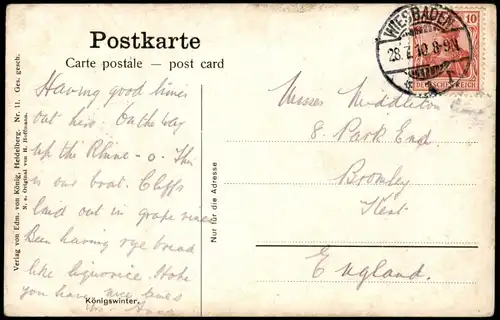 Postkarte
Carte postale — post card
WIESBADEN
28.7.10 8-9N
10
DEUTSCHES REICH
Having good times
out here. On the way
up the Rhine - o. This
is our boat. Cliffs
laid out in grape vines
Been having rye bread
like liquorice. Hope
you have nice times
Misses Middleton
8. Park End.
Bromley
Kent
England.
Nur für die Adresse
Verlag von Edm. von König, Heidelberg. Nr. 11. Ges. gesch.
N. e. Original von H. Hoffmann.
Königswinter.